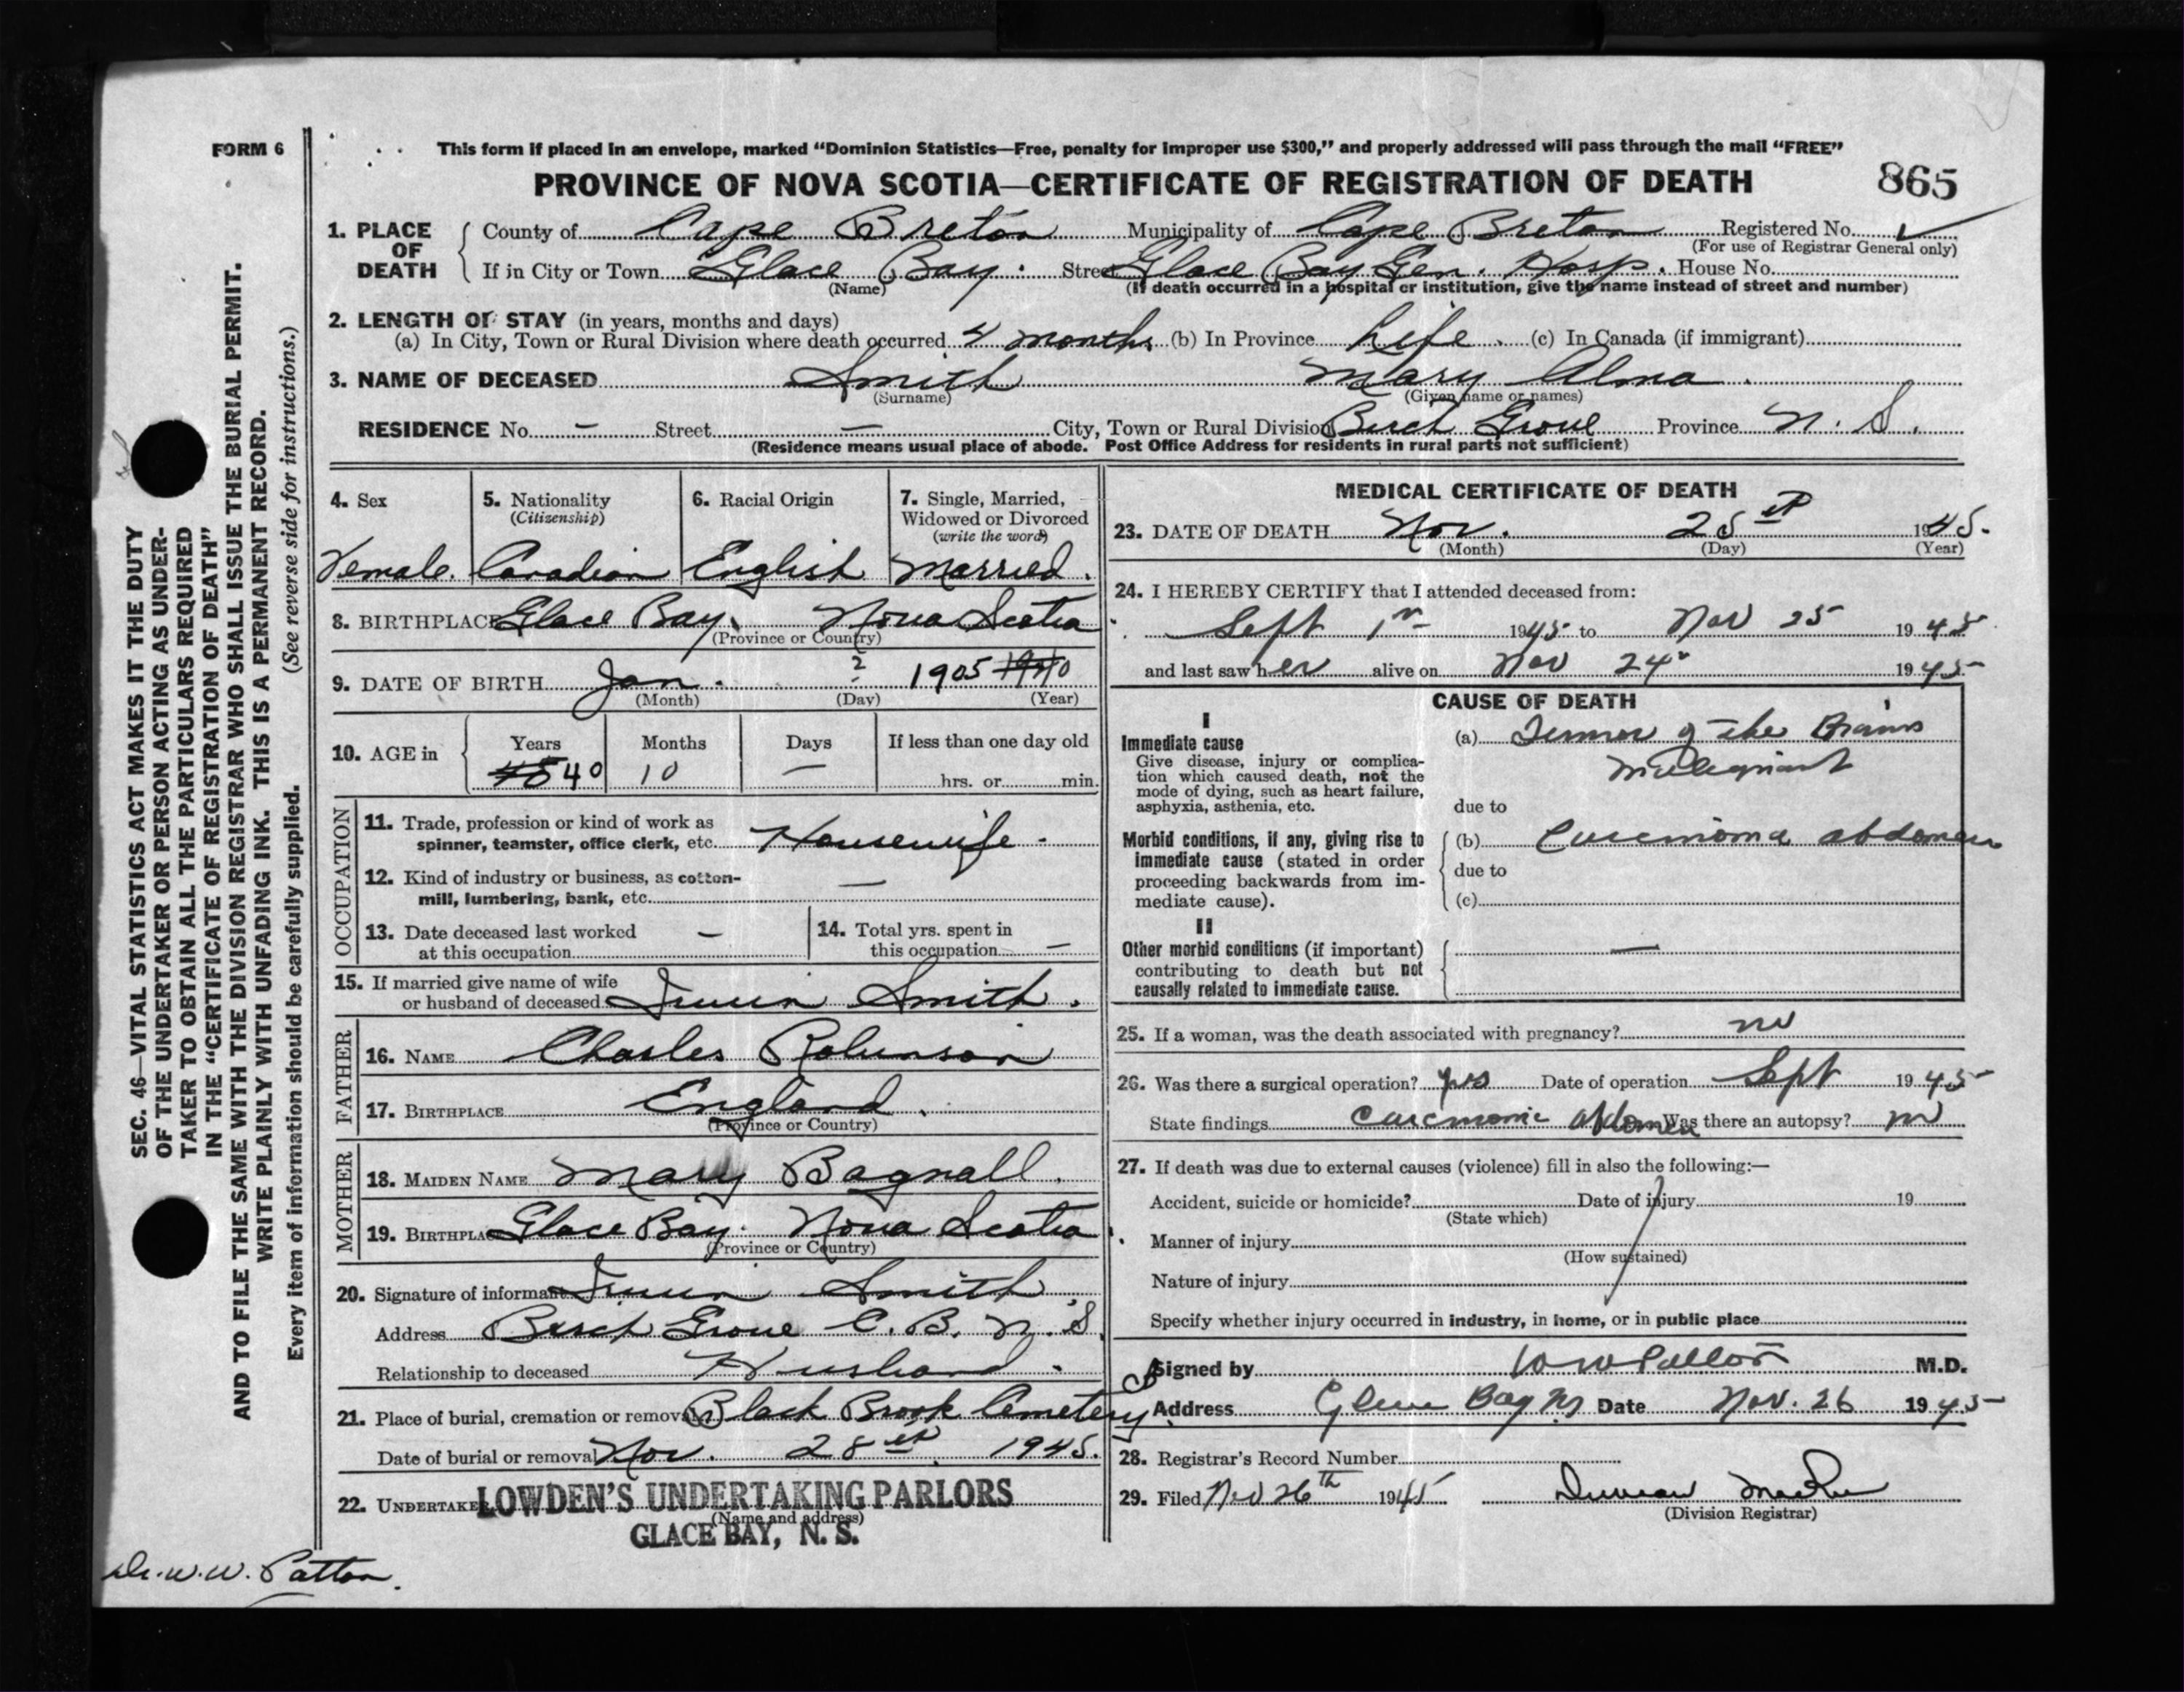 FORM 6
This form if placed in an envelope, marked “Dominion Statistics—Free, penalty for improper use $300,” and properly addressed will pass through the mail “FREE”
PROVINCE OF NOVA SCOTIA—CERTIFICATE OF REGISTRATION OF DEATH 865
1. PLACE OF DEATH
County of Cape Breton Municipality of Cape Breton Registered No. ✓
(For use of Registrar General only)
If in City or Town Glace Bay. Street Glace Bay Gen. Hosp. House No.
(Name) (If death occurred in a hospital or institution, give the name instead of street and number)
2. LENGTH OF STAY (in years, months and days)
(a) In City, Town or Rural Division where death occurred 4 months (b) In Province Life. (c) In Canada (if immigrant)
3. NAME OF DECEASED Smith Mary Alma.
(Surname) (Given name or names)
RESIDENCE No. — Street — City, Town or Rural Division Birch Grove Province N. S.
(Residence means usual place of abode. Post Office Address for residents in rural parts not sufficient)
4. Sex
Female.
5. Nationality
(Citizenship)
Canadian
6. Racial Origin
English
7. Single, Married,
Widowed or Divorced
(write the word)
Married.
8. BIRTHPLACE Glace Bay, Nova Scotia
(Province or Country)
9. DATE OF BIRTH Jan. ? 1905
(Month) (Day) (Year)
10. AGE in
Years Months Days If less than one day old
40 10 — hrs. or min.
OCCUPATION
11. Trade, profession or kind of work as
spinner, teamster, office clerk, etc. Housewife.
12. Kind of industry or business, as cotton-
mill, lumbering, bank, etc. —
13. Date deceased last worked
at this occupation —
14. Total yrs. spent in
this occupation —
15. If married give name of wife
or husband of deceased Smith.
FATHER
16. NAME Charles Robinson
17. BIRTHPLACE England.
(Province or Country)
MOTHER
18. MAIDEN NAME Mary Bagnall.
19. BIRTHPLACE Glace Bay. Nova Scotia.
(Province or Country)
20. Signature of informant Smith.
Address Birch Grove C. B. N. S.
Relationship to deceased Husband.
21. Place of burial, cremation or removal Black Brook Cemetery.
Date of burial or removal Nov. 28th. 1945.
22. UNDERTAKER LOWDEN'S UNDERTAKING PARLORS
(Name and address)
GLACE BAY, N. S.
MEDICAL CERTIFICATE OF DEATH
23. DATE OF DEATH Nov. 25th 1945.
(Month) (Day) (Year)
24. I HEREBY CERTIFY that I attended deceased from:
Sept 1st 1945 to Nov 25 1945
and last saw her alive on Nov 24th 1945
CAUSE OF DEATH
I
Immediate cause
Give disease, injury or complica-
tion which caused death, not the
mode of dying, such as heart failure,
asphyxia, asthenia, etc.
(a) Tumor of the Brain
Malignant
due to
Morbid conditions, if any, giving rise to
immediate cause (stated in order
proceeding backwards from im-
mediate cause).
(b) Carcinoma abdomen
due to
(c)
II
Other morbid conditions (if important)
contributing to death but not
causally related to immediate cause.
—
25. If a woman, was the death associated with pregnancy? no
26. Was there a surgical operation? yes Date of operation Sept 1945
State findings Carcinoma Abdomen Was there an autopsy? no
27. If death was due to external causes (violence) fill in also the following:—
Accident, suicide or homicide? Date of injury 19
(State which)
Manner of injury
(How sustained)
Nature of injury
Specify whether injury occurred in industry, in home, or in public place
Signed by W W Patton M.D.
Address Glace Bay NS Date Nov. 26 1945
28. Registrar's Record Number
29. Filed Nov 26th 1945 Duncan
(Division Registrar)
Dr. W. W. Patton.
SEC. 46—VITAL STATISTICS ACT MAKES IT THE DUTY
OF THE UNDERTAKER OR PERSON ACTING AS UNDER-
TAKER TO OBTAIN ALL THE PARTICULARS REQUIRED
IN THE “CERTIFICATE OF REGISTRATION OF DEATH”
AND TO FILE THE SAME WITH THE DIVISION REGISTRAR WHO SHALL ISSUE THE BURIAL PERMIT.
WRITE PLAINLY WITH UNFADING INK. THIS IS A PERMANENT RECORD.
Every item of information should be carefully supplied. (See reverse side for instructions.)